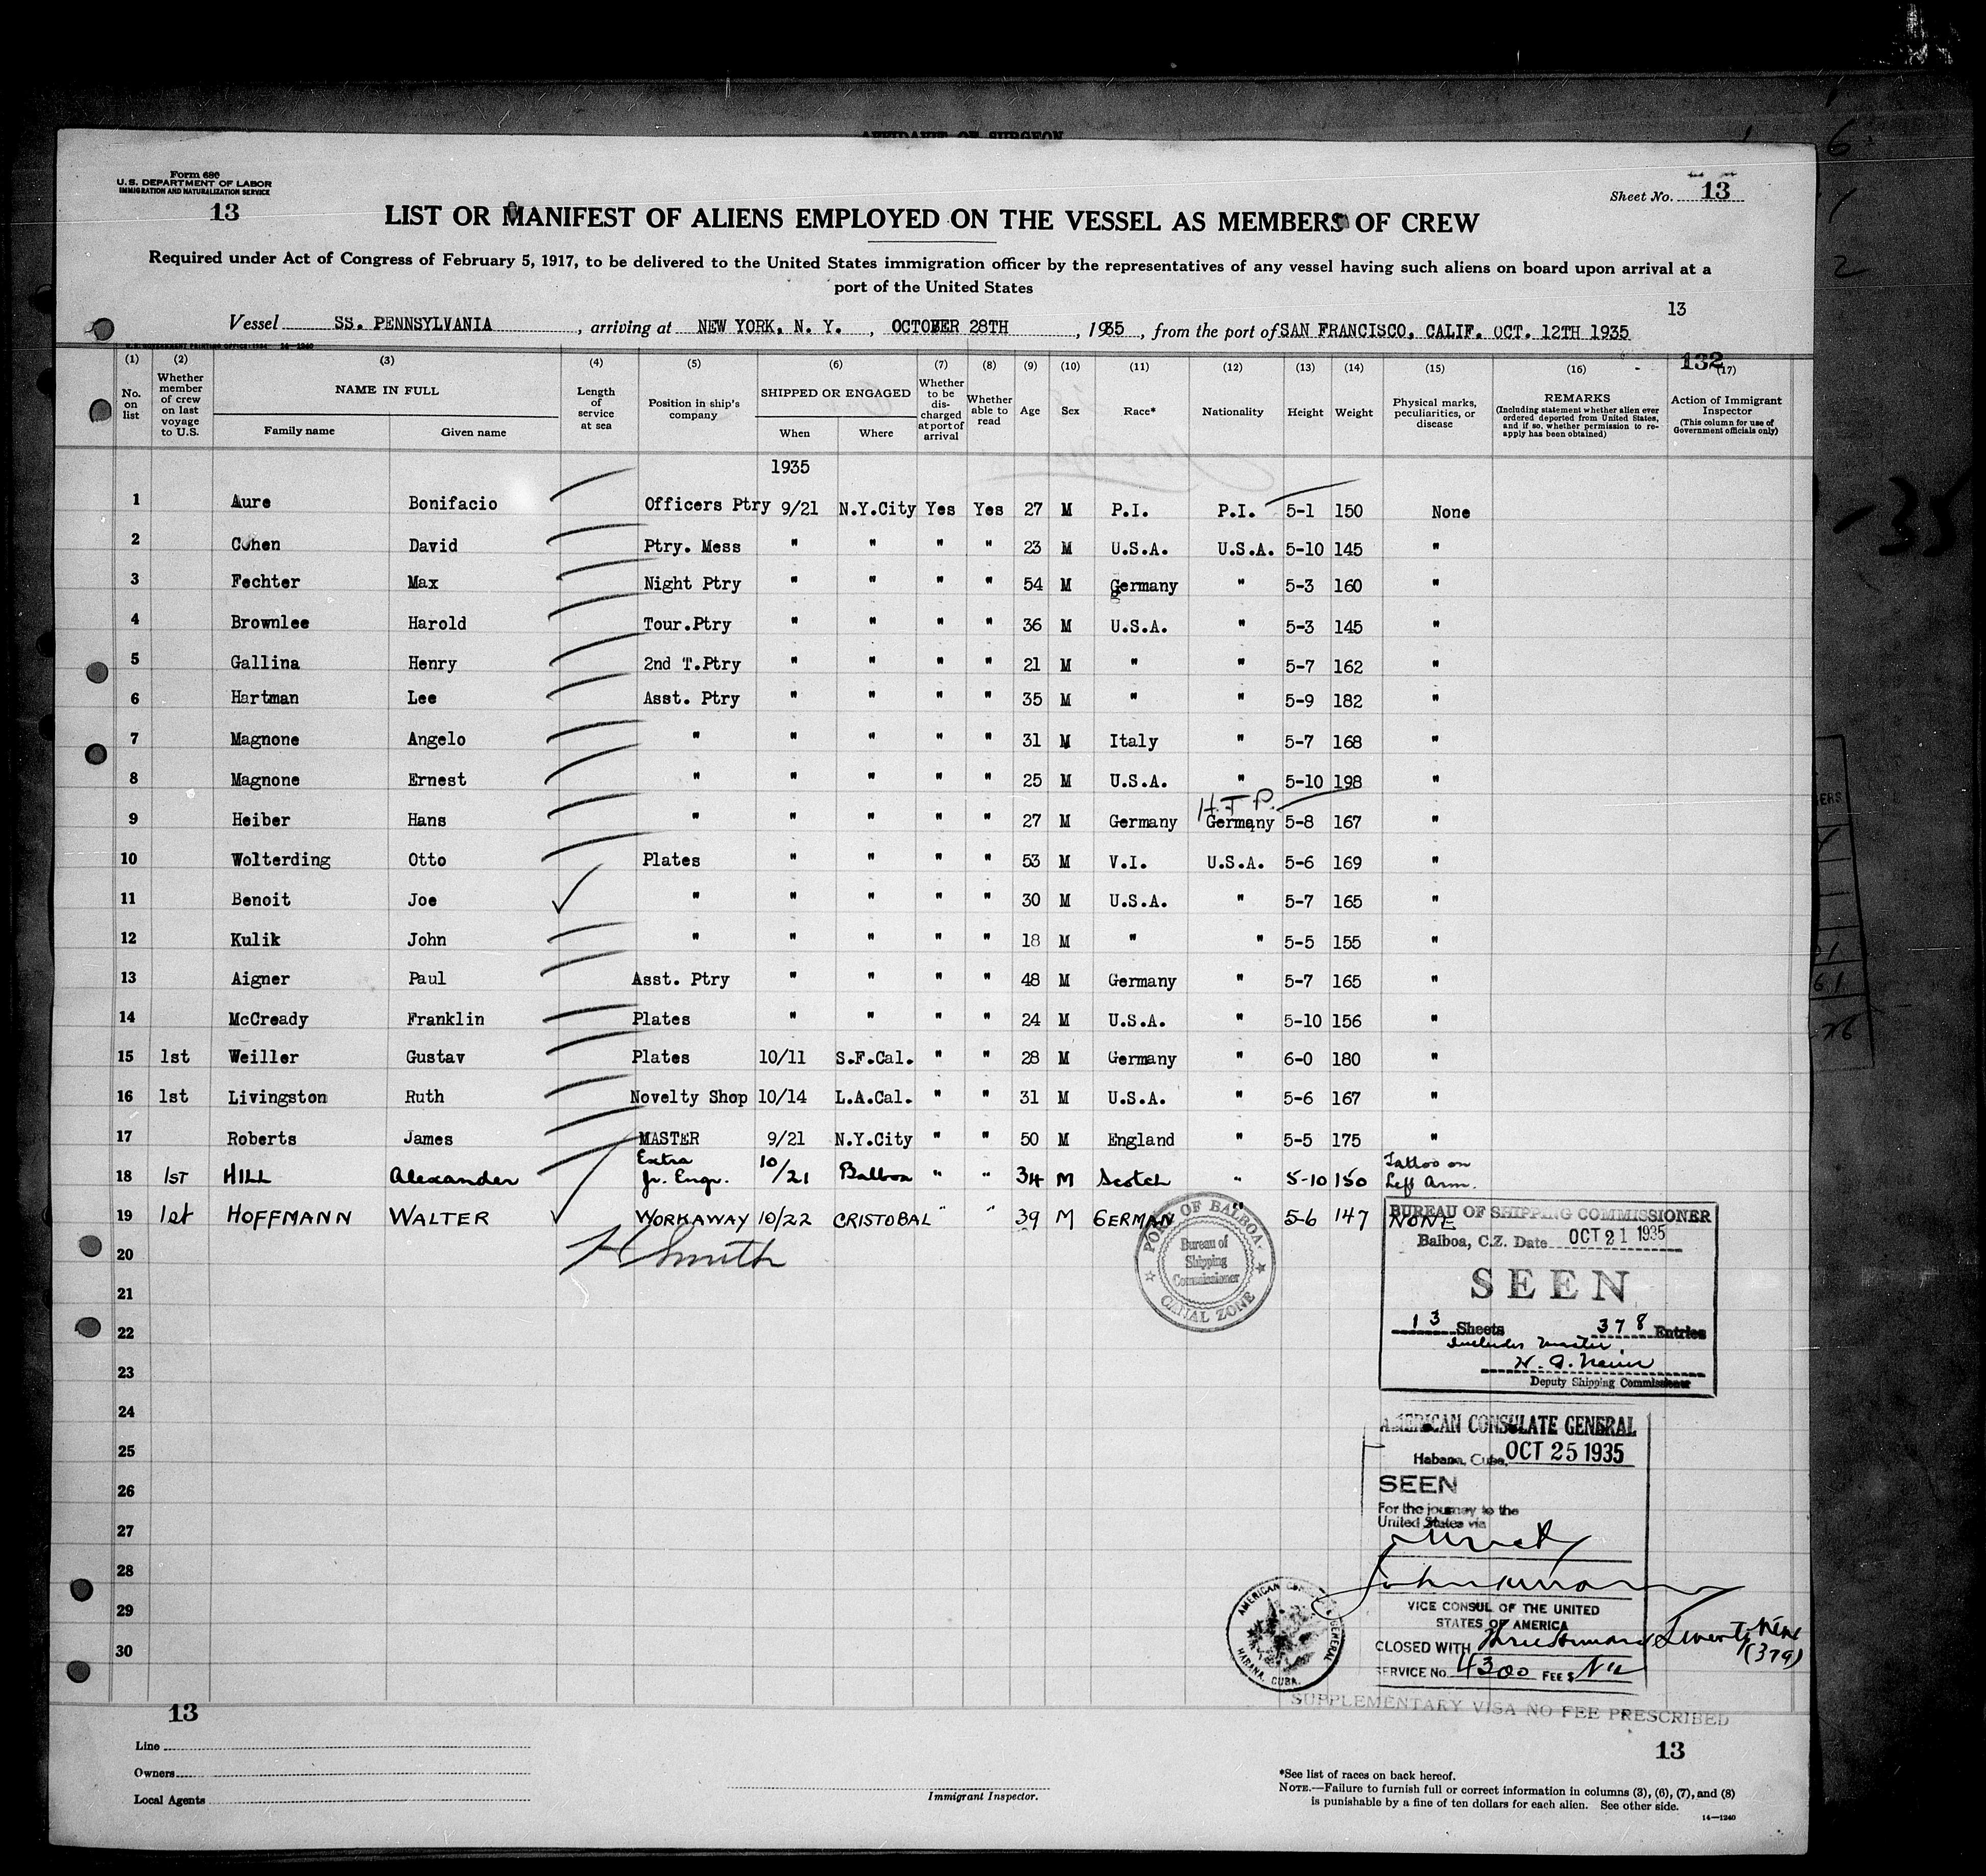 AFFIDAVIT OF SURGEON
Form 680
U. S. DEPARTMENT OF LABOR
IMMIGRATION AND NATURALIZATION SERVICE
13
Sheet No. 13
LIST OR MANIFEST OF ALIENS EMPLOYED ON THE VESSEL AS MEMBERS OF CREW
Required under Act of Congress of February 5, 1917, to be delivered to the United States immigration officer by the representatives of any vessel having such aliens on board upon arrival at a
port of the United States
13
Vessel SS. PENNSYLVANIA, arriving at NEW YORK, N. Y., OCTOBER 28TH, 1935, from the port of SAN FRANCISCO, CALIF. OCT. 12TH 1935
U. S. GOVERNMENT PRINTING OFFICE: 1934 14—1240
132
(1) (2) (3) (4) (5) (6) (7) (8) (9) (10) (11) (12) (13) (14) (15) (16) (17)
No. on list
Whether member of crew on last voyage to U.S.
NAME IN FULL
Family name Given name
Length of service at sea
Position in ship's company
SHIPPED OR ENGAGED
When Where
Whether to be discharged at port of arrival
Whether able to read
Age Sex Race* Nationality Height Weight
Physical marks, peculiarities, or disease
REMARKS
(Including statement whether alien ever ordered deported from United States, and if so, whether permission to reapply has been obtained)
Action of Immigrant Inspector
(This column for use of Government officials only)
1935
1 Aure Bonifacio Officers Ptry 9/21 N.Y.City Yes Yes 27 M P.I. P.I. 5-1 150 None
2 Cohen David Ptry. Mess " " " " 23 M U.S.A. U.S.A. 5-10 145 "
3 Fechter Max Night Ptry " " " " 54 M Germany " 5-3 160 "
4 Brownlee Harold Tour.Ptry " " " " 36 M U.S.A. " 5-3 145 "
5 Gallina Henry 2nd T.Ptry " " " " 21 M " " 5-7 162 "
6 Hartman Lee Asst. Ptry " " " " 35 M " " 5-9 182 "
7 Magnone Angelo " " " " " 31 M Italy " 5-7 168 "
8 Magnone Ernest " " " " " 25 M U.S.A. " 5-10 198 "
H.T.P.
9 Heiber Hans " " " " " 27 M Germany Germany 5-8 167 "
10 Wolterding Otto Plates " " " " 53 M V.I. U.S.A. 5-6 169 "
11 Benoit Joe " " " " " 30 M U.S.A. " 5-7 165 "
12 Kulik John " " " " " 18 M " " 5-5 155 "
13 Aigner Paul Asst. Ptry " " " " 48 M Germany " 5-7 165 "
14 McCready Franklin Plates " " " " 24 M U.S.A. " 5-10 156 "
15 1st Weiller Gustav Plates 10/11 S.F.Cal. " " 28 M Germany " 6-0 180 "
16 1st Livingston Ruth Novelty Shop 10/14 L.A.Cal. " " 31 M U.S.A. " 5-6 167 "
17 Roberts James MASTER 9/21 N.Y.City " " 50 M England " 5-5 175 "
18 1ST HILL Alexander Extra Jr. Engr. 10/21 Balboa " " 34 M Scotch " 5-10 150 Tattoo on Left Arm.
19 1st HOFFMANN WALTER WORKAWAY 10/22 CRISTOBAL " " 39 M GERMAN " 5-6 147 NONE
H Smith
20
21
22
23
24
25
26
27
28
29
30
PORT OF BALBOA
Bureau of
Shipping
Commissioner
CANAL ZONE
BUREAU OF SHIPPING COMMISSIONER
Balboa, C.Z. Date OCT 21 1935
SEEN
13 Sheets 378 Entries
Includes master.
Deputy Shipping Commissioner
AMERICAN CONSULATE GENERAL
Habana, Cuba, OCT 25 1935
SEEN
For the journey to the
United States via
VICE CONSUL OF THE UNITED
STATES OF AMERICA
CLOSED WITH Three Hundred Seventy Nine
(379)
SERVICE No. 4300 FEE $ Nil
AMERICAN CONSULATE GENERAL
HABANA, CUBA.
SUPPLEMENTARY VISA NO FEE PRESCRIBED
13
13
Line
Owners
Local Agents
Immigrant Inspector.
*See list of races on back hereof.
NOTE.—Failure to furnish full or correct information in columns (3), (6), (7), and (8)
is punishable by a fine of ten dollars for each alien. See other side.
14—1240
-35